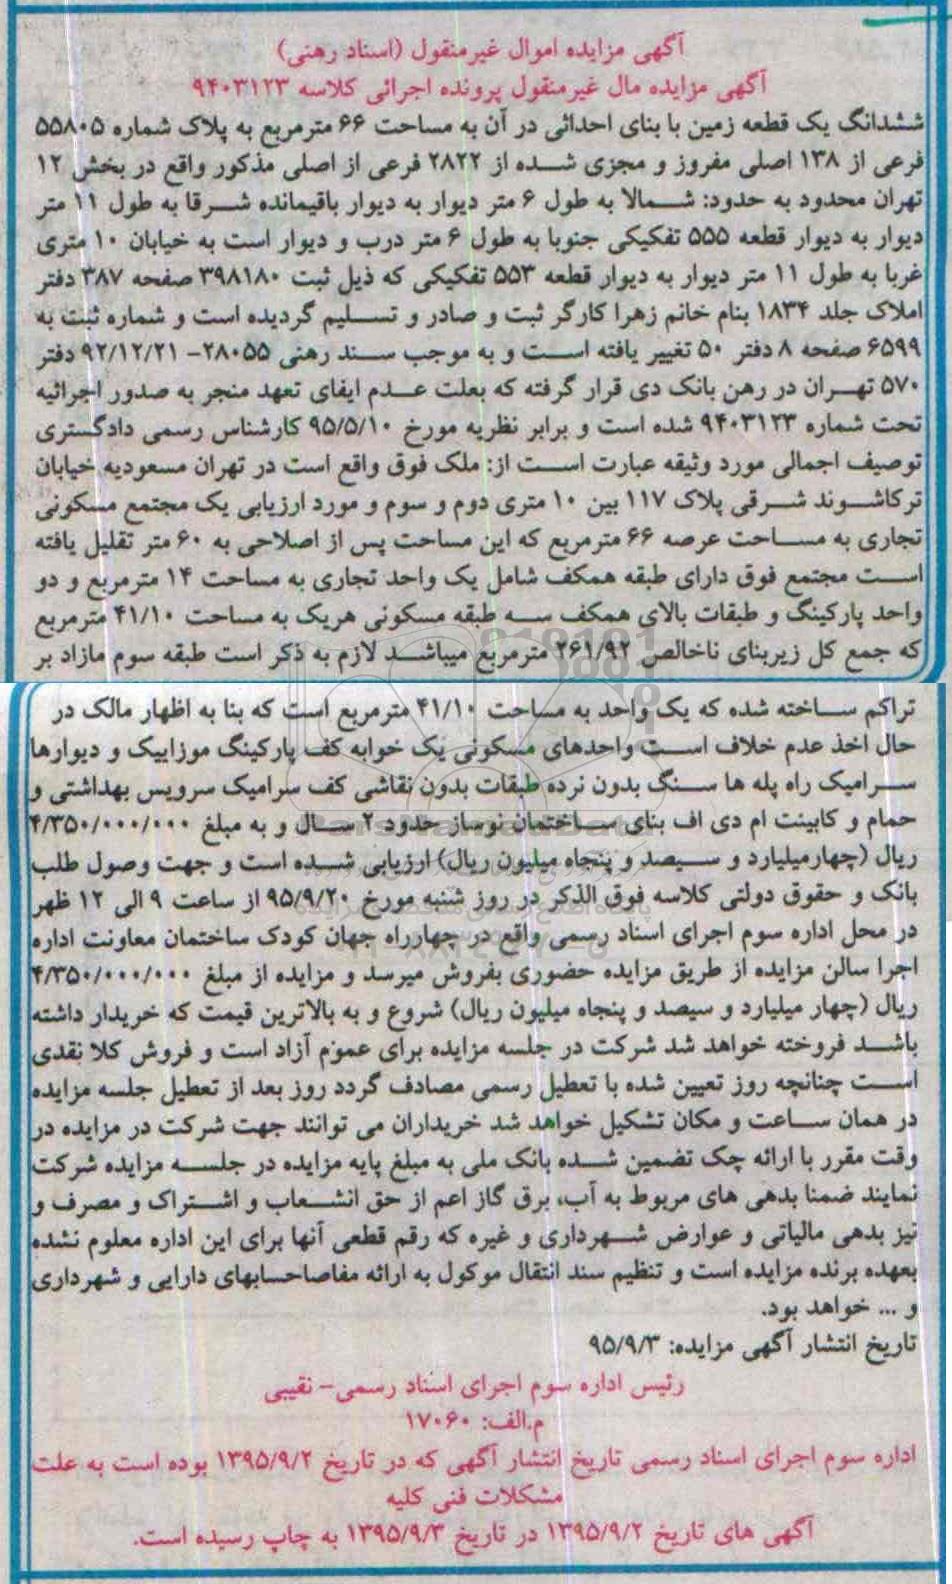 آگهی مزایده اموال غیرمنقول (اسناد رهنی)
آگهی مزایده مال غیرمنقول پرونده اجرائی کلاسه ۹۴۰۳۱۲۳
ششدانگ یک قطعه زمین با بنای احداثی در آن به مساحت ۶۶ مترمربع به پلاک شماره ۵۵۸۰۵
فرعی از ۱۳۸ اصلی مفروز و مجزی شده از ۲۸۲۲ فرعی از اصلی مذکور واقع در بخش ۱۲
تهران محدود به حدود: شمالا به طول ۶ متر دیوار به دیوار باقیمانده شرقا به طول ۱۱ متر
دیوار به دیوار قطعه ۵۵۵ تفکیکی جنوبا به طول ۶ متر درب و دیوار است به خیابان ۱۰ متری
غربا به طول ۱۱ متر دیوار به دیوار قطعه ۵۵۳ تفکیکی که ذیل ثبت ۳۹۸۱۸۰ صفحه ۳۸۷ دفتر
املاک جلد ۱۸۳۴ بنام خانم زهرا کارگر ثبت و صادر و تسلیم گردیده است و شماره ثبت به
۶۵۹۹ صفحه ۸ دفتر ۵۰ تغییر یافته است و به موجب سند رهنی ۲۸۰۵۵- ۹۲/۱۲/۲۱ دفتر
۵۷۰ تهران در رهن بانک دی قرار گرفته که بعلت عدم ایفای تعهد منجر به صدور اجرائیه
تحت شماره ۹۴۰۳۱۲۳ شده است و برابر نظریه مورخ ۹۵/۵/۱۰ کارشناس رسمی دادگستری
توصیف اجمالی مورد وثیقه عبارت است از: ملک فوق واقع است در تهران مسعودیه خیابان
ترکاشوند شرقی پلاک ۱۱۷ بین ۱۰ متری دوم و سوم و مورد ارزیابی یک مجتمع مسکونی
تجاری به مساحت عرصه ۶۶ مترمربع که این مساحت پس از اصلاحی به ۶۰ متر تقلیل یافته
است مجتمع فوق دارای طبقه همکف شامل یک واحد تجاری به مساحت ۱۴ مترمربع و دو
واحد پارکینگ و طبقات بالای همکف سه طبقه مسکونی هریک به مساحت ۴۱/۱۰ مترمربع
که جمع کل زیربنای ناخالص ۲۶۱/۹۲ مترمربع میباشد لازم به ذکر است طبقه سوم مازاد بر
تراکم ساخته شده که یک واحد به مساحت ۴۱/۱۰ مترمربع است که بنا به اظهار مالک در
حال اخذ عدم خلاف است واحدهای مسکونی یک خوابه کف پارکینگ موزاییک و دیوارها
سرامیک راه پله ها سنگ بدون نرده طبقات بدون نقاشی کف سرامیک سرویس بهداشتی و
حمام و کابینت ام دی اف بنای ساختمان نوساز حدود ۲ سال و به مبلغ ۴/۳۵۰/۰۰۰/۰۰۰
ریال (چهارمیلیارد و سیصد و پنجاه میلیون ریال) ارزیابی شده است و جهت وصول طلب
بانک و حقوق دولتی کلاسه فوق الذکر در روز شنبه مورخ ۹۵/۹/۲۰ از ساعت ۹ الی ۱۲ ظهر
در محل اداره سوم اجرای اسناد رسمی واقع در چهارراه جهان کودک ساختمان معاونت اداره
اجرا سالن مزایده از طریق مزایده حضوری بفروش میرسد و مزایده از مبلغ ۴/۳۵۰/۰۰۰/۰۰۰
ریال (چهار میلیارد و سیصد و پنجاه میلیون ریال) شروع و به بالاترین قیمت که خریدار داشته
باشد فروخته خواهد شد شرکت در جلسه مزایده برای عموم آزاد است و فروش کلا نقدی
است چنانچه روز تعیین شده با تعطیل رسمی مصادف گردد روز بعد از تعطیل جلسه مزایده
در همان ساعت و مکان تشکیل خواهد شد خریداران می توانند جهت شرکت در مزایده در
وقت مقرر با ارائه چک تضمین شده بانک ملی به مبلغ پایه مزایده در جلسه مزایده شرکت
نمایند ضمنا بدهی های مربوط به آب، برق گاز اعم از حق انشعاب و اشتراک و مصرف و
نیز بدهی مالیاتی و عوارض شهرداری و غیره که رقم قطعی آنها برای این اداره معلوم نشده
بعهده برنده مزایده است و تنظیم سند انتقال موکول به ارائه مفاصاحسابهای دارایی و شهرداری
و ... خواهد بود.
تاریخ انتشار آگهی مزایده: ۹۵/۹/۳
رئیس اداره سوم اجرای اسناد رسمی- نقیبی
م.الف: ۱۷۰۶۰
اداره سوم اجرای اسناد رسمی تاریخ انتشار آگهی که در تاریخ ۱۳۹۵/۹/۲ بوده است به علت
مشکلات فنی کلیه
آگهی های تاریخ ۱۳۹۵/۹/۲ در تاریخ ۱۳۹۵/۹/۳ به چاپ رسیده است.